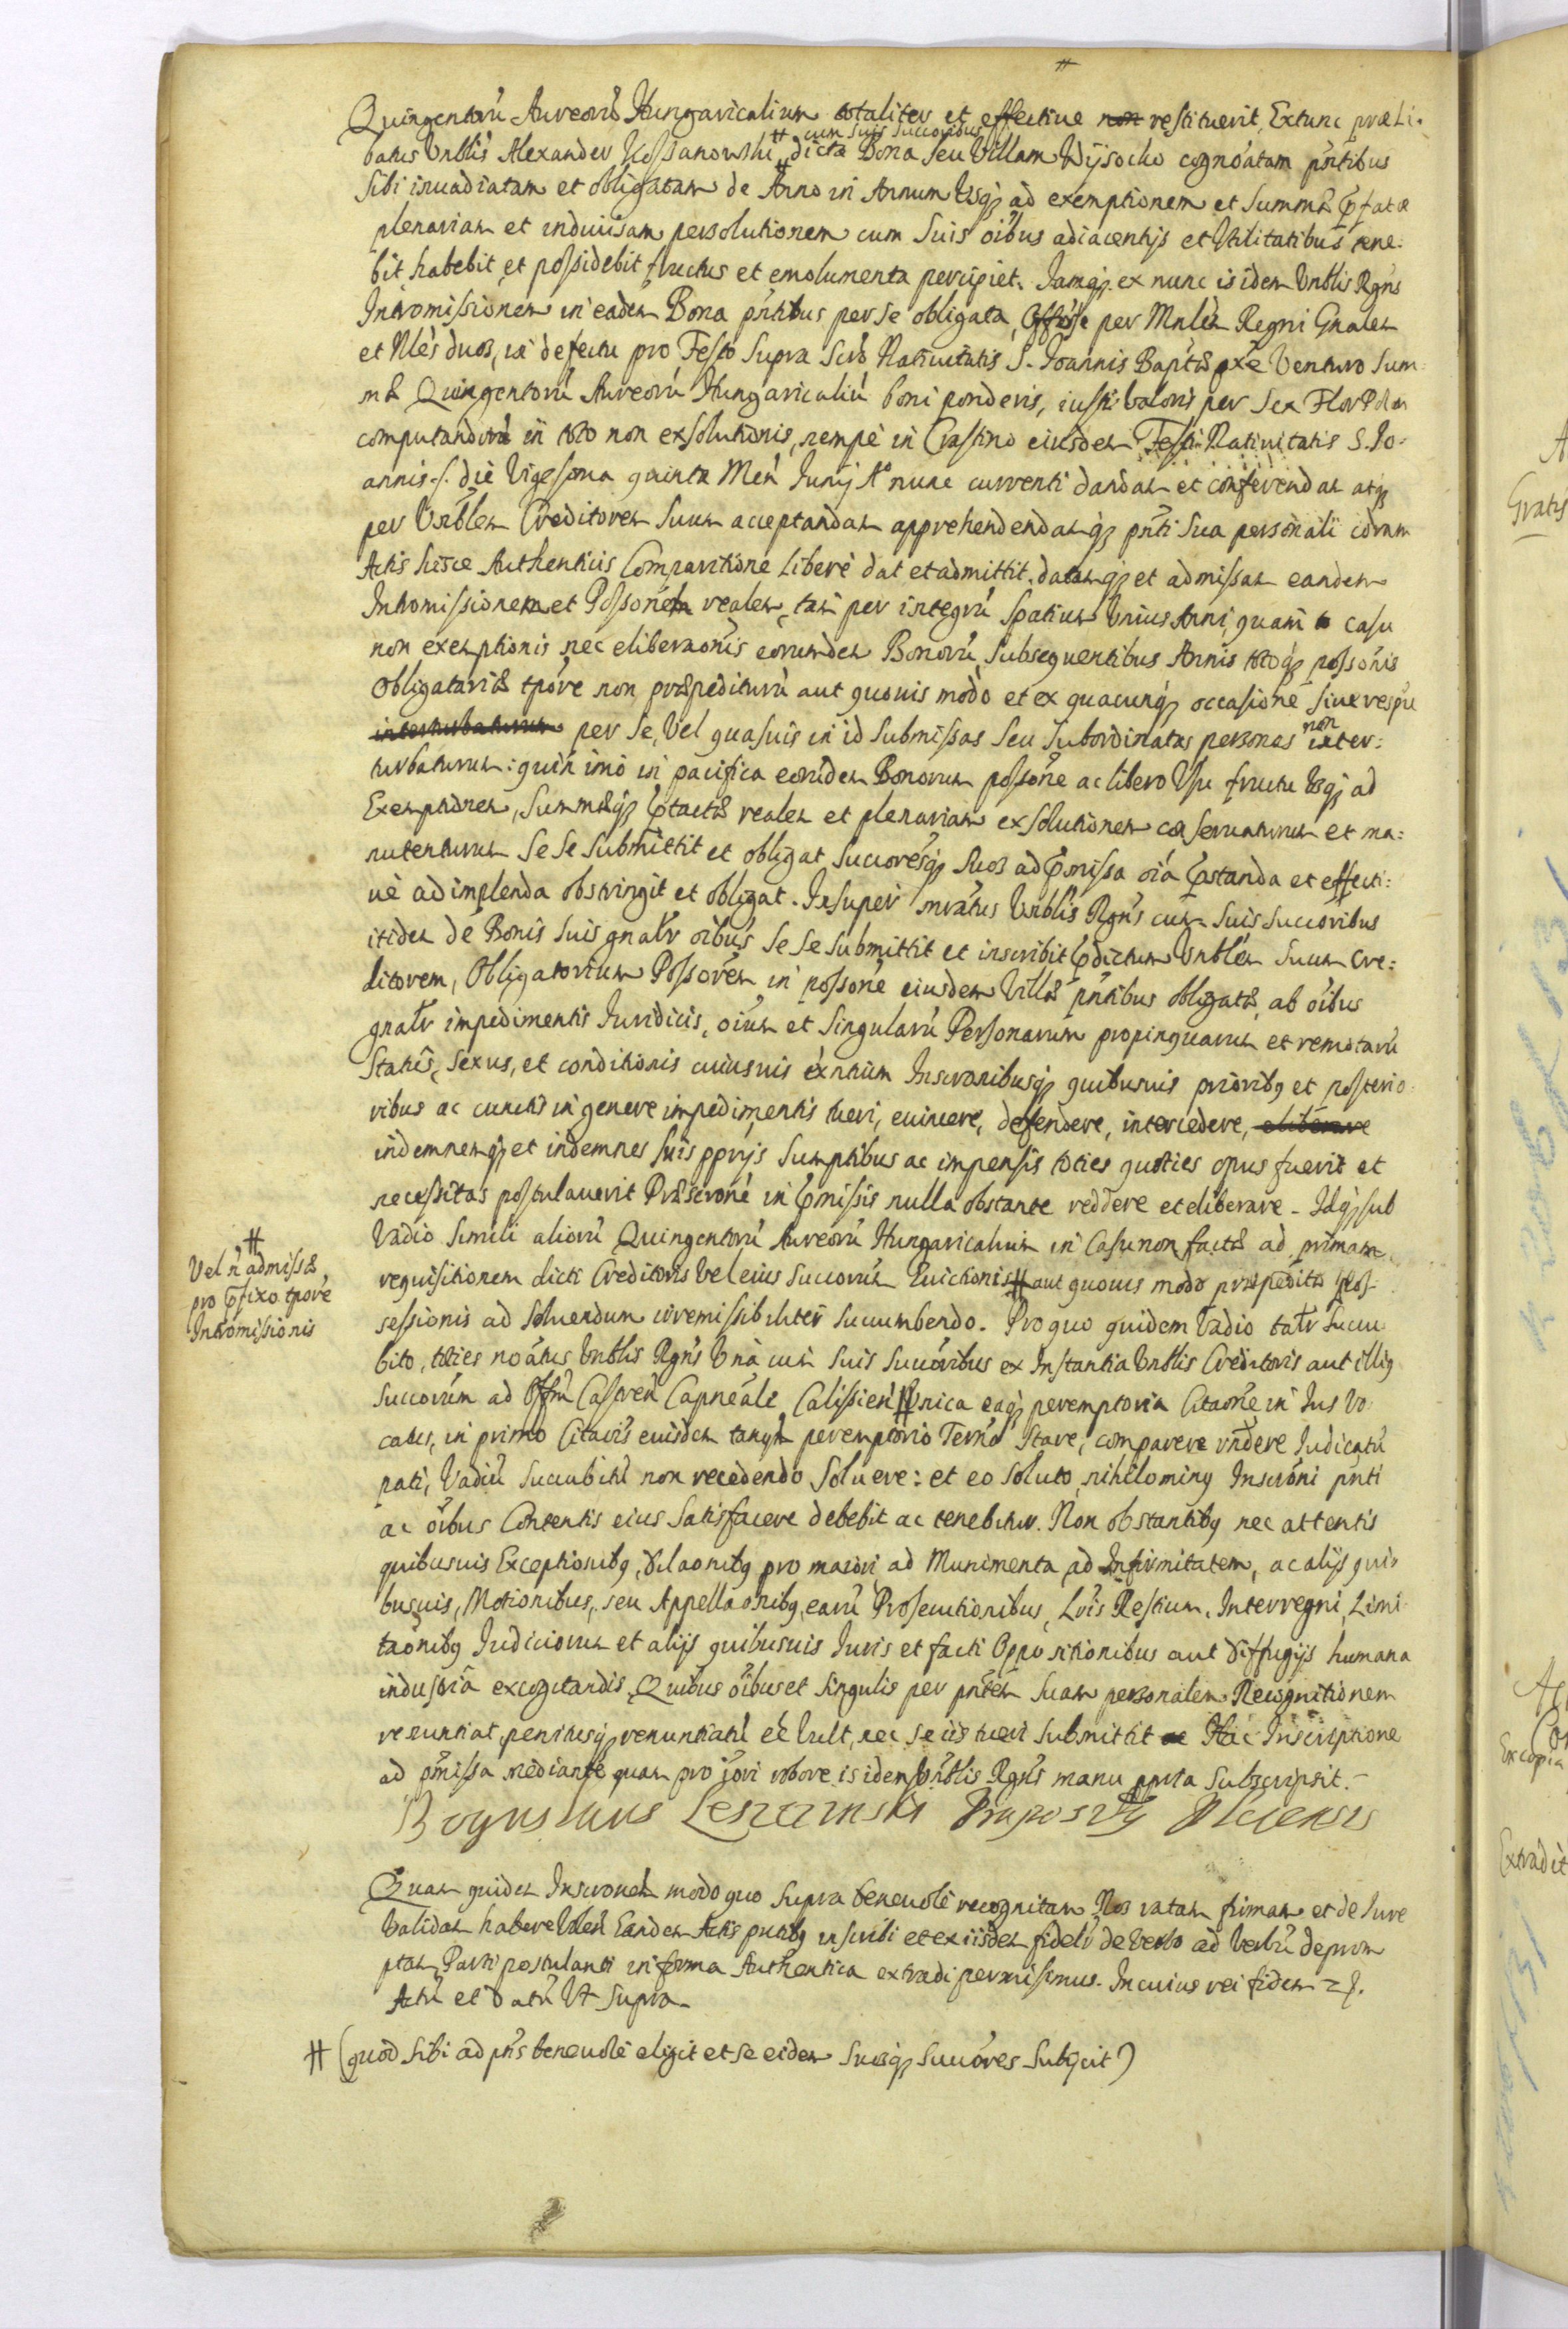 Quingentorũ Aureorũ Hungaricalium totaliter et effectiue non restituerit, Extunc præli-
batus Vrblis Alexander Kossanowski # cum suis Succoribus dicta Bona seu Villam Wysocko cognoatam pñtibus
sibi inuadiatam et obligatam de Anno in Annum Usq; ad exemptionem et Summæ pfatæ
plenariam et indiuisam persolutionem cum suis oibus adiacentijs et Vtilitatibus tene-
bit, habebit, et possidebit, fructus et emolumenta percipiet. Iamq; ex nunc is idem Vrblis Rgns
Intromissionem in eadem Bona pñtibus per se obligata, per Mnlem Regni Gnalem
et Nles duos, in defectu pro Festo supra scro Natiuitatis S. Ioannis Baptæ pxe Venturo Sum-
mæ Quingentorũ Aureorũ Hungaricaliũ boni ponderis, iusti valoris per Sex Flor Polon
computandorũ in toto non exsolutionis, nempe in Crastino eiusdem Festi Natiuitatis S. Io-
annis .s. die Vigesima quinta Men Iunij Aº nunc currenti dandam et conferendam atq;
per Vrblem Creditorem suum acceptandam apprehendendamq; pñti sua personali coram
Actis hisce Authenticis Comparitione libere dat et admittit. datamq; et admissam eandem
Intromissionem et Possonem realem, tam per integrũ spatium Vnius Anni, quam casu
non exemptionis nec eliberaonis eorundem Bonorũ, subsequentibus Annis totoq; possonis
Obligatariæ tpore non præpediturũ aut quouis modo et ex quacunq; occasione siue respu
interturbaturum per se, Vel quasuis in id submissas seu subordinatas personas non inter-
turbaturum: quin imo in pacifica eorũdem Bonorum possone ac libero Vsu fructu Usq; ad
Exemptionem, Summæq; ptactæ realem et plenariam exsolutionem conseruaturum et ma-
nutenturum Sese submittit et obligat Succoresq; suos ad pmissa oia pstanda et effecti-
ue adimplenda obstringit et obligat. Insuper mratus Vrblis Rgns cum suis Succoribus
itidem de Bonis suis gnalr oibus Sese submittit et inscribit pdictum Vrblem suum Cre-
ditorem, Obligatorium Possorem in possone eiusdem Villæ pñtibus obligatæ, ab oibus
gnalr impedimentis Iuridicis, oium et singularũ Personarum propinquarum et remotarũ
Status, sexus, et conditionis cuiusuis exntium Inscronibusq; quibusuis prioribq et posterio-
ribus ac cunctis in genere impedimentis tueri, euincere, defendere, intercedere, eliberare
indemnemq; et indemnes suis pprijs sumptibus ac impensis toties quoties opus fuerit et
necessitas postulauerit Præscrone in pmissis nulla obstante reddere et eliberare. Idq; sub
Vadio simili aliorũ Quingentorũ Aureorũ Hungaricalium in Casu non factæ ad primam
requisitionem dicti Creditoris vel eius Succorum Euictionis # aut quouis modo præpeditæ Pos-
sessionis ad soluendum irremissibiliter succumbendo. Pro quo quidem Vadio talr succu
bito, toties noatus Vrblis Rgns Vna cum suis Succoribus ex Instantia Vrblis Creditoris aut illiq
Succorum ad Offm Castren Capneale Calissien # Vnica eaq; peremptoria Citaone in Ius Vo-
catus, in primo Citaois euisdem tanqm peremptorio Termo Stare, comparere rndere Iudicatũ
pati, Vadiũ succubitũ non recedendo Soluere: et eo soluto, nihilominq Inscroni pñti
ac oibus Contentis eius satisfacere debebit ac tenebitur. Non obstantibq nec attentis
quibusuis Exceptionibq, dilaonibq pro maiori ad Munimenta, ad Infirmitatem, ac alijs qui-
busuis, Motionibus, seu Appellaonibq, earũ Prosecutionibus, Lris Restium, Interregni, Limi
taonibq Iudiciorum et alijs quibusuis Iuris et facti Oppositionibus aut diffugijs humana
industria excogitandis. Quibus oibus et singulis per pñtem suam personalem Recognitionem
renuntiat, penitusq; renuntiatũ ee vult, nec se iis tueri submittit Hac Inscriptione
ad pmissa mediante quam pro iori robore is idem Vrblis Rgns manu ppria subscripsit.
Bogusłaus Leszczinski Præpositq Plocensis
Quam quidem Inscronem modo quo supra beneuole recognitam Nos ratam firmam et de Iure
validam habere Volen Eandem Actis pntibq inscribi et ex iisdem fideli de verbo ad verbũ deprom
ptam, Parti postulanti in forma Authentica extradi permisimus. In cuius rei fidem
Actũ et Datũ Vt supra.
# (quod sibi ad pns beneuole eligit et se eidem suosq; Succores subijcit)
#
Vel ñ admissæ
pro pfixo tpore
Intromissionis
Gratis
Ex copia
Extradit